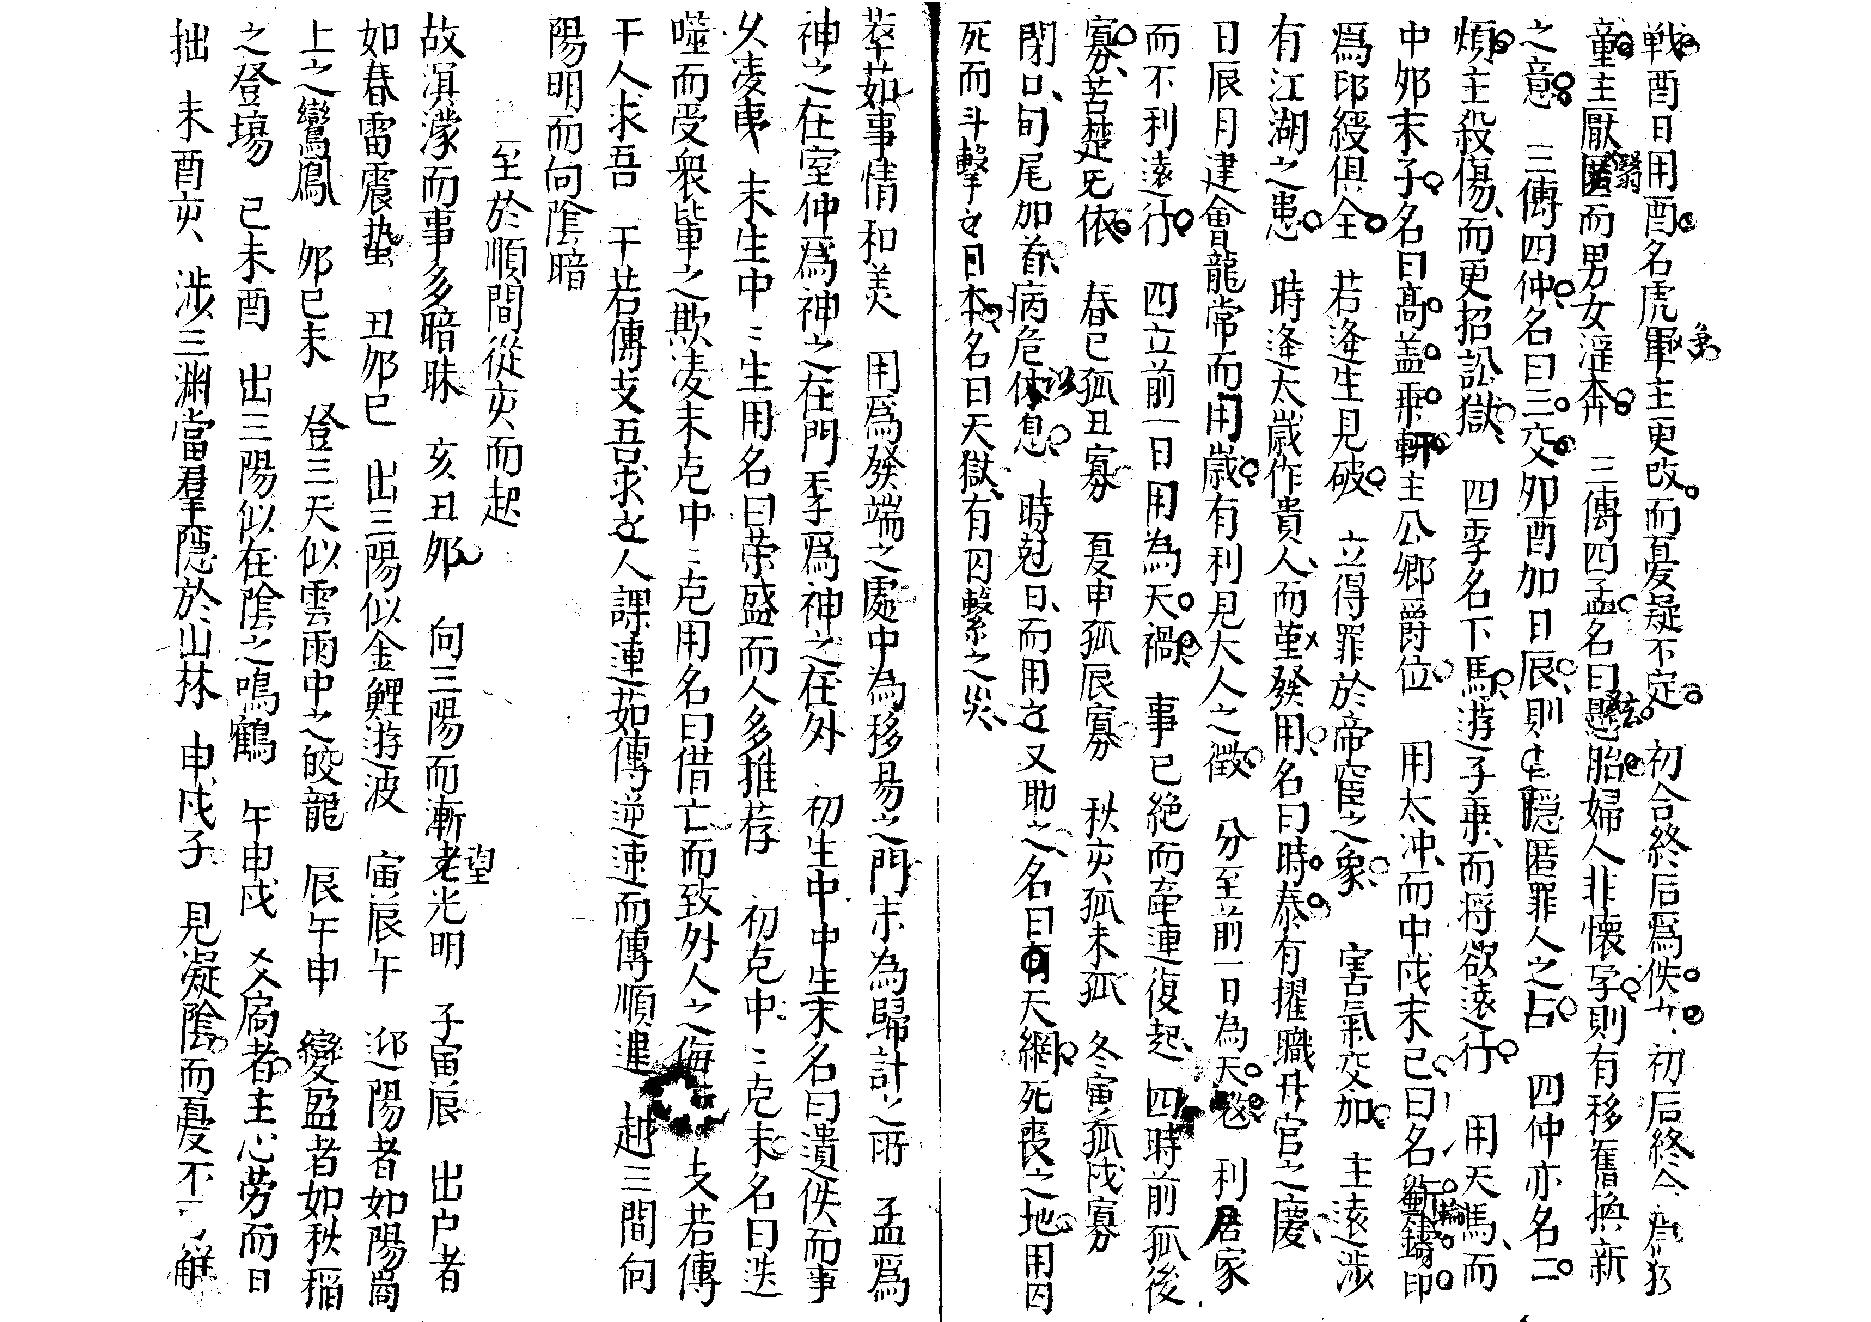 戰酉日用酉名虎軍主更改而憂疑不定 初合終后爲佚女初后終合爲狡
童主厭匿而男女淫奔 三傳四孟名曰懸胎婦人非懷孕則有移舊換新
之意 三傳四仲名曰三交夘酉加日辰則主隠匿罪人之占 四仲亦名二
煩主殺傷而更招訟獄 四季名下馬逰子乘而将欲遠行 用天馬而
中夘末子名曰髙盖乘軒主公卿爵位 用太冲而中戌末已曰名鑄印
爲印綬俱全 若逢生見破 立得罪於帝𡨕之象 害氣交加 主遠渉
有江湖之患 時逢太歲作貴人而堇發用名曰時泰有擢職升官之慶
日辰月建會龍常而用歲有利見大人之徵 分至前一日為天㓙 利居家
而不利遠行 四立前一日用為天禍 事已絶而牽連復起 四時前孤後
寡苦楚旡依 春巳孤丑寡 夏申孤辰寡 秋亥孤未孤 冬寅孤戌寡
閉口旬尾加首病危休息 時尅日而用㐅又助之名曰天網死喪之地用囚
死而斗擊㐅日本名曰天獄有囚繫之災
茟茹事情和美 用爲發端之處中為移易之門末為歸計之所 孟爲
神之在室仲爲神之在門季爲神之在外 初生中中生末名曰遺佚而事
乆凌夷 末生中〻生用名曰荣盛而人多推荐 初克中〻克末名曰迭
噬而受衆軰之欺凌末克中〻克用名曰借亡而致外人之侮 支若傳
干人求吾 干若傳支吾求㐅人課連茹傳逆速而傳順遲 越三間向
陽明而向陰暗
至於順間從亥而起
故溟濛而事多暗昧 亥丑夘 向三陽而漸望光明 子寅辰 出户者
如春雷震蟄 丑夘巳 出三陽似金鯉逰波 寅辰午 迎陽者如陽岡
上之鸞鳳 夘巳未 登三天似雲雨中之蛟龍 辰午申 變盈者如秋稲
之登塲 巳未酉 出三陽似在陰之鳴鶴 午申戌 爻扃者主心劳而日
拙 未酉亥 渉三淵當羣隠於山林 申戌子 見凝陰而憂不 解